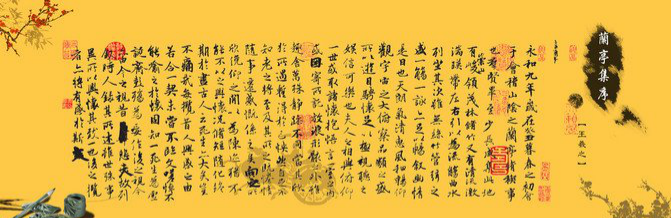 蘭亭集序
【王羲之】
永和九年歲在癸丑暮春之初會
于會稽山陰之蘭亭脩稧事
也羣賢畢至少長咸集此地
有崇山峻領茂林脩竹又有清流激
湍暎帶左右引以為流觴曲水
列坐其次雖無絲竹管弦之
盛一觴一詠亦足以暢敘幽情
是日也天朗氣清惠風和暢仰
觀宇宙之大俯察品類之盛
所以遊目騁懷足以極視聽之
娛信可樂也夫人之相與俯仰
一世或取諸懷抱悟言一室之內
或因寄所託放浪形骸之外雖
趣舍萬殊靜躁不同當其欣
於所遇暫得於己怏然自足不
知老之將至及其所之既惓情
隨事遷感慨係之矣向之所
欣俛仰之閒以為陳迹猶不
能不以之興懷況脩短隨化終
期於盡古人云死生亦大矣豈
不痛哉每攬昔人興感之由
若合一契未嘗不臨文嗟悼不
能喻之於懷固知一死生為虛
誕齊彭殤為妄作後之視今
亦由今之視昔悲夫故列
敘時人錄其所述雖世殊事
異所以興懷其致一也後之攬
者亦將有感於斯文